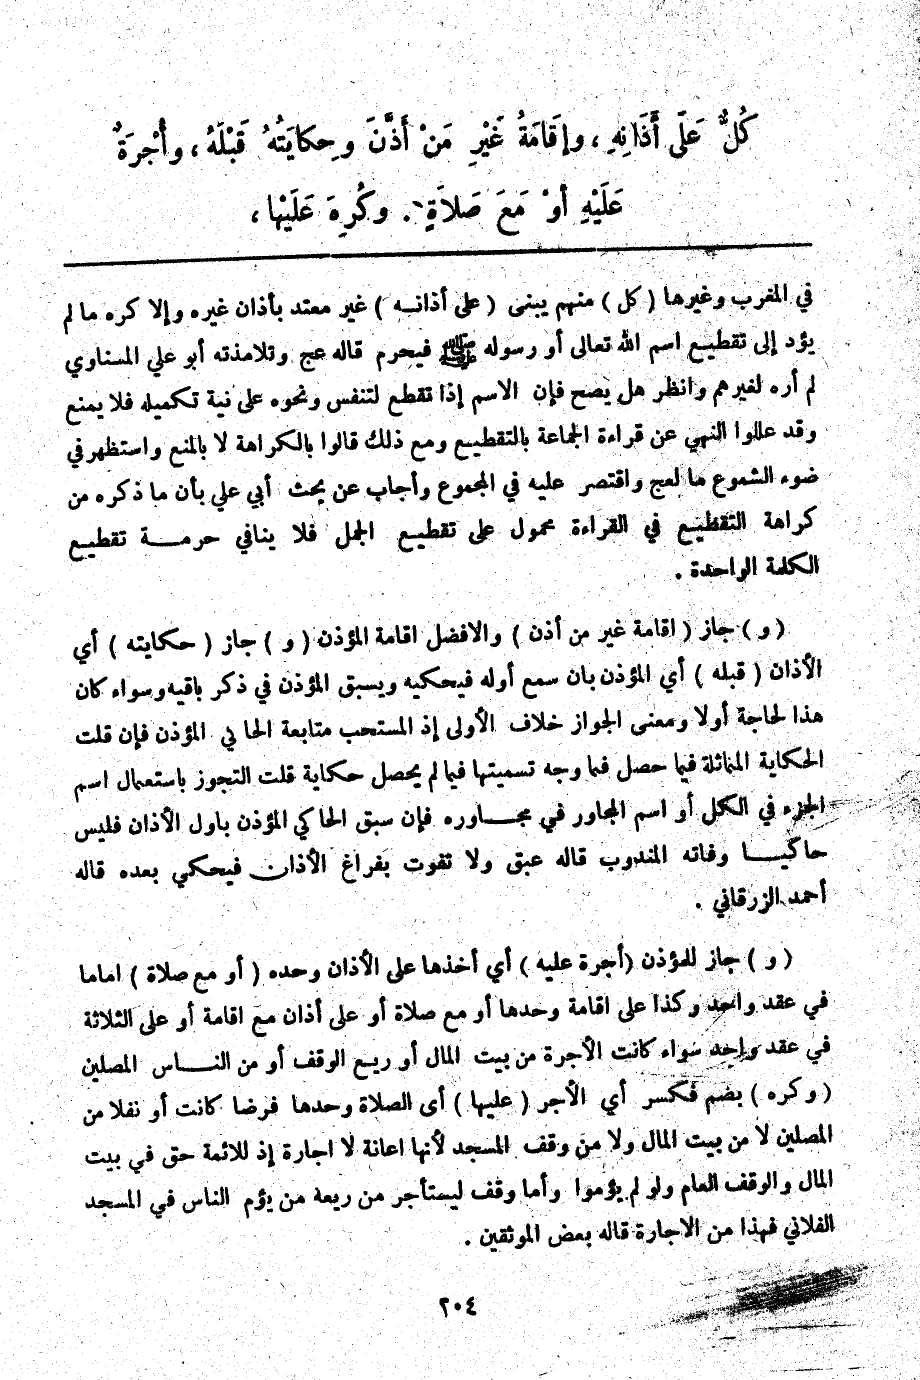 كُلٌّ عَلَى أَذَانِهِ ، وإِقَامَةُ غَيْرِ مَنْ أَذَّنَ وحِكايَتُهُ قَبْلَهُ ، وأُجْرَةٌ
عَلَيْهِ أَوْ مَعَ صَلاَةٍ . وكُرِهَ عَلَيْها ،
في المغرب وغيرها ( كل ) منهم يبنى ( على أذانـه ) غير معتد بأذان غيره وإلا كره ما لم
يؤد إلى تقطيع اسم الله تعالى أو رسوله ﷺ فيحرم قاله عج وتلامذته أبو علي المسناوي
لم أره لغيرهم وانظر هل يصح فإن الاسم إذا تقطع لتنفس ونحوه على نية تكميله فلا يمنع
وقد عللوا النهي عن قراءة الجماعة بالتقطيع ومع ذلك قالوا بالكراهة لا بالمنع واستظهر في
ضوء الشموع ما لعج واقتصر عليه في المجموع وأجاب عن بحث أبي علي بأن ما ذكره من
كراهة التقطيع في القراءة محمول على تقطيع الجمل فلا ينافي حرمــة تقطيع
الكلمة الواحدة .
( و ) جاز ( اقامة غير من أذن ) والافضل اقامة المؤذن ( و ) جاز ( حكايته ) أي
الأذان ( قبله ) أي المؤذن بان سمع أوله فيحكيه ويسبق المؤذن في ذكر باقيه وسواء كان
هذا لحاجة أولا ومعنى الجواز خلاف الأولى إذ المستحب متابعة الحاكي المؤذن فإن قلت
الحكاية المماثلة فيما حصل فما وجه تسميتها فيما لم يحصل حكاية قلت التجوز باستعمال اسم
الجزء في الكل أو اسم المجاور في مجـــاوره فإن سبق الحاكي المؤذن باول الأذان فليس
حاكيـــا وفاته المندوب قاله عبق ولا تفوت بفراغ الأذان فيحكي بعده قاله
أحمد الزرقاني .
( و ) جاز للمؤذن (أجرة عليه ) أي أخذها على الأذان وحده ( أو مع صلاة ) اماما
في عقد واحد وكذا على اقامة وحدها أو مع صلاة أو على أذان مع اقامة أو على الثلاثة
في عقد واحد سواء كانت الأجرة من بيت المال أو ريع الوقف أو من النـــاس المصلين
( وكره ) بضم فكسر أي الأجر ( عليها ) أى الصلاة وحدها فرضا كانت أو نفلا من
المصلين لا من بيت المال ولا من وقف المسجد لأنها اعانة لا اجارة إذ للائمة حق في بيت
المال والوقف العام ولو لم يؤموا وأما وقف ليستأجر من ريعه من يؤم الناس في المسجد
الفلاني فهذا من الاجارة قاله بعض الموثقين .
٢٠٤